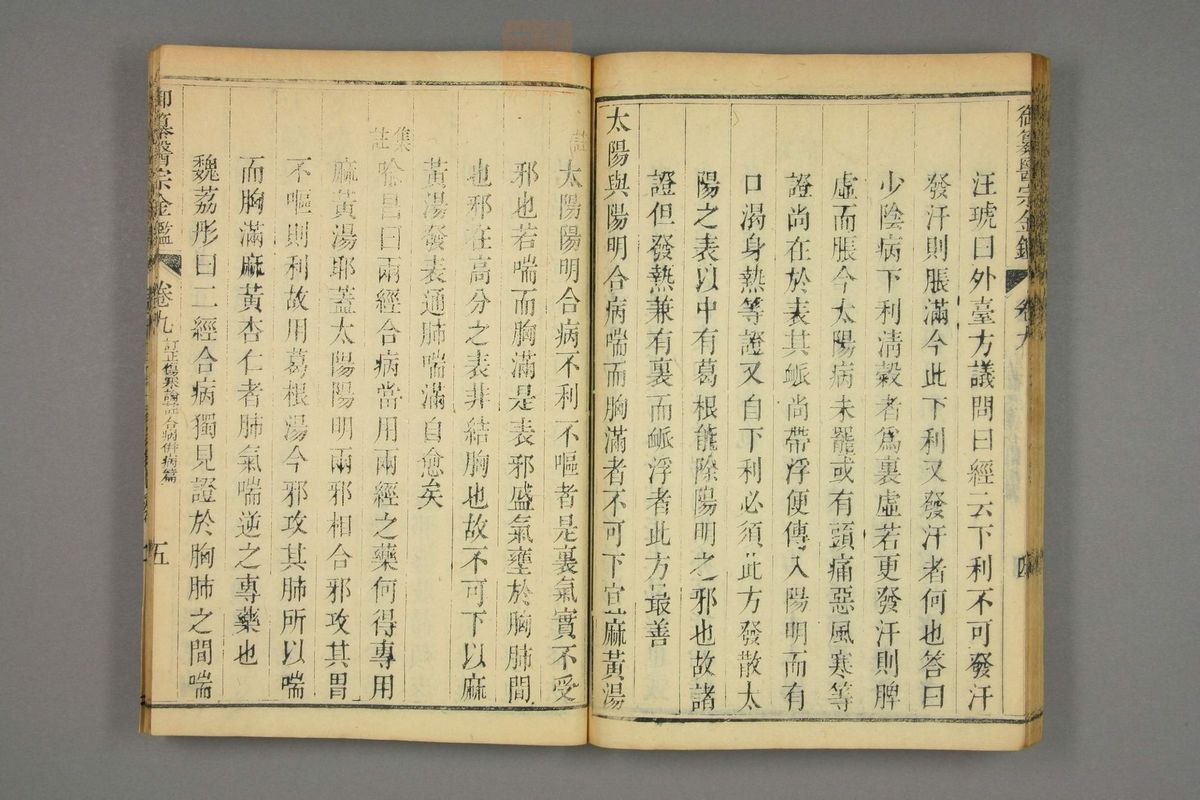 御纂醫宗金鑑 卷九 四
汪琥曰外臺方議問曰經云下利不可發汗
發汗則脹滿今此下利又發汗者何也答曰
少陰病下利清穀者爲裏虛若更發汗則脾
虛而脹今太陽病未罷或有頭痛惡風寒等
證尚在於表其脈尚帶浮便傳入陽明而有
口渴身熱等證又自下利必須此方發散太
陽之表以中有葛根能除陽明之邪也故諸
證但發熱兼有裏而脈浮者此方最善
太陽與陽明合病喘而胸滿者不可下宜麻黃湯
註 太陽陽明合病不利不嘔者是裏氣實不受
邪也若喘而胸滿是表邪盛氣壅於胸肺間
也邪在高分之表非結胸也故不可下以麻
黃湯發表通肺喘滿自愈矣
集註 喻昌曰兩經合病當用兩經之藥何得專用
麻黃湯耶蓋太陽陽明兩邪相合邪攻其胃
不嘔則利故用葛根湯今邪攻其肺所以喘
而胸滿麻黃杏仁者肺氣喘逆之專藥也
魏荔彤曰二經合病獨見證於胸肺之間喘
御纂醫宗金鑑 卷九 訂正傷寒論註合病併病篇 五